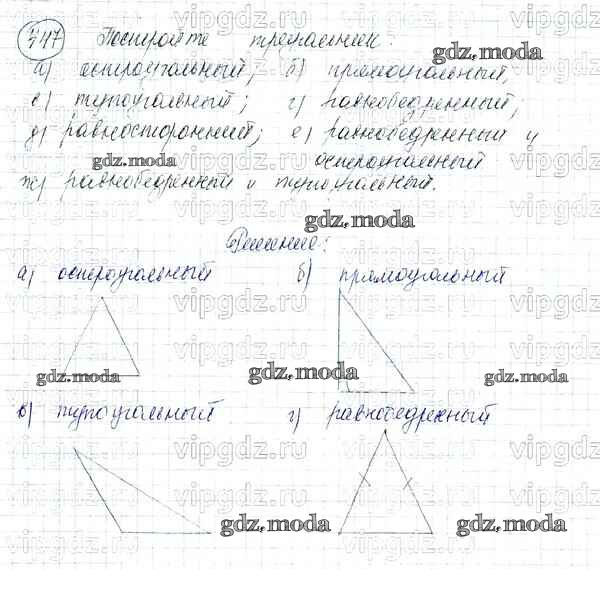 747 Постройте треугольник:
а) остроугольный; б) прямоугольный;
в) тупоугольный; г) равнобедренный;
д) равносторонний; е) равнобедренный и
остроугольный
ж) равнобедренный и тупоугольный.
Решение:
а) остроугольный б) прямоугольный
в) тупоугольный г) равнобедренный
gdz.moda
vipgdz.ru